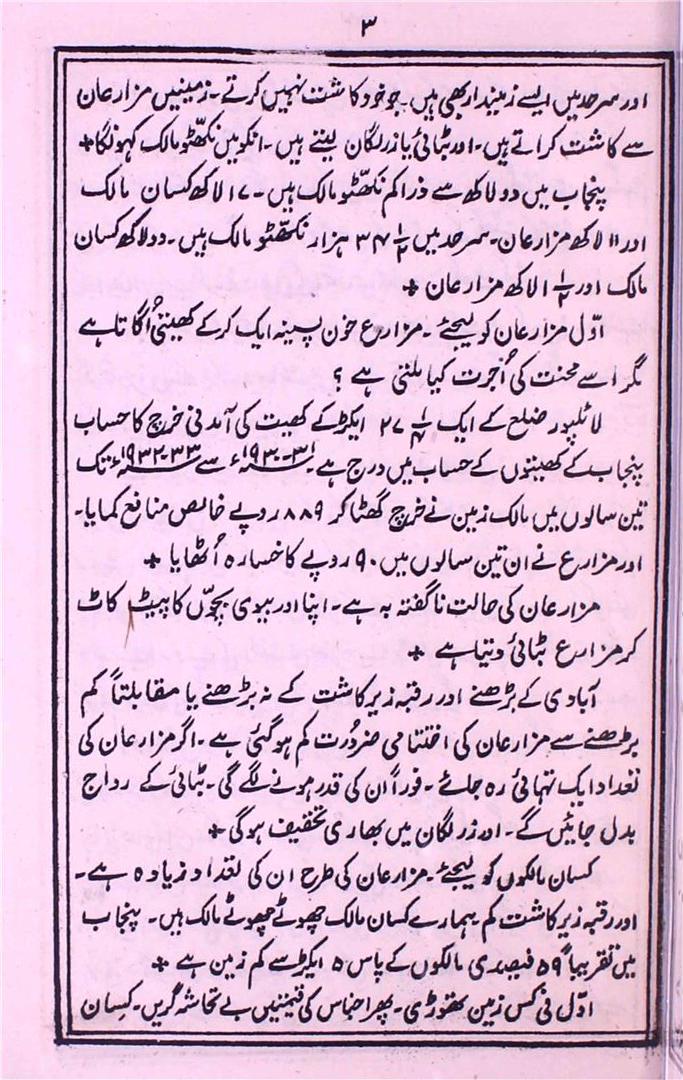 ۳
اور سرحد میں ایسے زمیندار بھی ہیں۔ جو خود کاشت نہیں کرتے۔ زمینیں مزارعان
سے کاشت کراتے ہیں۔ اور بٹائی یا زر لگان لیتے ہیں۔ انکو میں نکھٹو مالک کہوں گا +
پنجاب میں دو لاکھ سے ذرا کم نکھٹو مالک ہیں۔ ۱۷ لاکھ کسان مالک
اور ۱۱ لاکھ مزارعان۔ سرحد میں ½ ۳۷ ہزار نکھٹو مالک ہیں۔ دو لاکھ کسان
مالک اور ½ ۱ لاکھ مزارعان +
اوّل مزارعان کو لیجئے۔ مزارع خون پسینہ ایک کر کے کھیتی اُگاتا ہے
مگر اسے محنت کی اُجرت کیا ملتی ہے ؟
لائلپور ضلع کے ایک ¼ ۲۷ ایکڑ کے کھیت کی آمدنی خرچ کا حساب
پنجاب کے کھیتوں کے حساب میں درج ہے۔ ۳۱-۱۹۳۰ء سے ۳۳-۱۹۳۲ء تک
تین سالوں میں مالک زمین نے خرچ گھٹا کر ۸۸۹ روپے خالص منافع کمایا۔
اور مزارع نے ان تین سالوں میں ۹۰ روپے کا خسارہ اُٹھایا +
مزارعان کی حالت ناگفتہ بہ ہے۔ اپنا اور بیوی بچوں کا پیٹ کاٹ
کر مزارع بٹائی دیتا ہے +
آبادی کے بڑھنے اور رقبہ زیر کاشت کے نہ بڑھنے یا مقابلتاً کم
بڑھنے سے مزارعان کی اختتامی ضرورت کم ہو گئی ہے۔ اگر مزارعان کی
تعداد ایک تہائی رہ جائے۔ فوراً ان کی قدر ہونے لگے گی۔ بٹائی کے رواج
بدل جائیں گے۔ اور زر لگان میں بھاری تخفیف ہو گی +
کسان مالکوں کو لیجئے۔ مزارعان کی طرح ان کی تعداد زیادہ ہے۔
اور رقبہ زیر کاشت کم۔ ہمارے کسان مالک چھوٹے چھوٹے مالک ہیں۔ پنجاب
میں تقریباً ۵۹ فیصدی مالکوں کے پاس ۵ ایکڑ سے کم زمین ہے +
اوّل فی کس زمین تھوڑی۔ پھر اجناس کی قیمتیں بے تحاشہ گریں۔ کسان